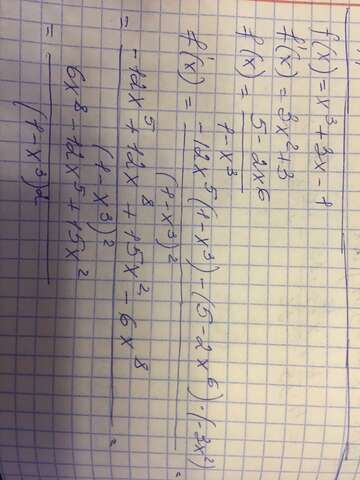 f(x) = x³ + 3x - 1
f'(x) = 3x² + 3
f(x) = (5 - 2x⁶)/(1 - x³)
f'(x) = (-12x⁵(1 - x³) - (5 - 2x⁶)·(-3x²))/(1 - x³)² =
= (-12x⁵ + 12x⁸ + 15x² - 6x⁸)/(1 - x³)² =
= (6x⁸ - 12x⁵ + 15x²)/(1 - x³)²